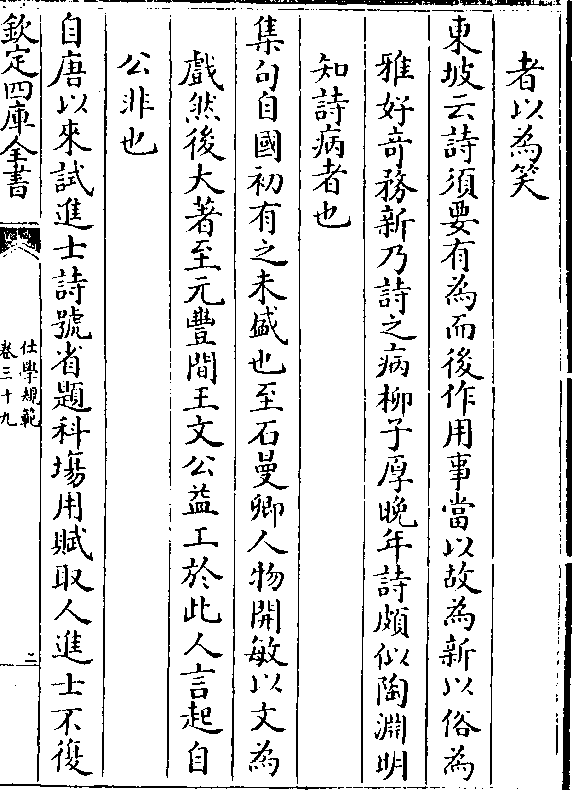 者以為笑
東坡云詩須要有為而後作用事當以故為新以俗為
雅好竒務新乃詩之病柳子厚晚年詩頗似陶淵明
知詩病者也
集句自國初有之未盛也至石曼卿人物開敏以文為
戲然後大著至元豐間王文公益工於此人言起自
公非也
自唐以來試進士詩號省題科塲用賦取人進士不復
欽定四庫全書
仕學規範
卷三十九
二